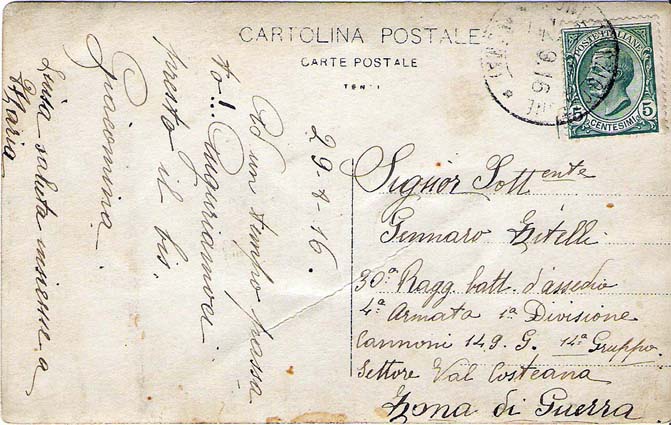 CARTOLINA POSTALE
CARTE POSTALE
POSTE ITALIANE
CENTESIMI 5
29-8-16
Ad un tempo passa
to!... Auguriamoci
presto il bis.
Giacomina
Luisa saluta insieme a
Maria
Signor Sott.ente
Gennaro Zitelli
30ª Ragg. batt. d'assedio
4ª Armata 1ª Divisione
Cannoni 149. G. 14º Gruppo
Settore Val Costeana
Zona di Guerra